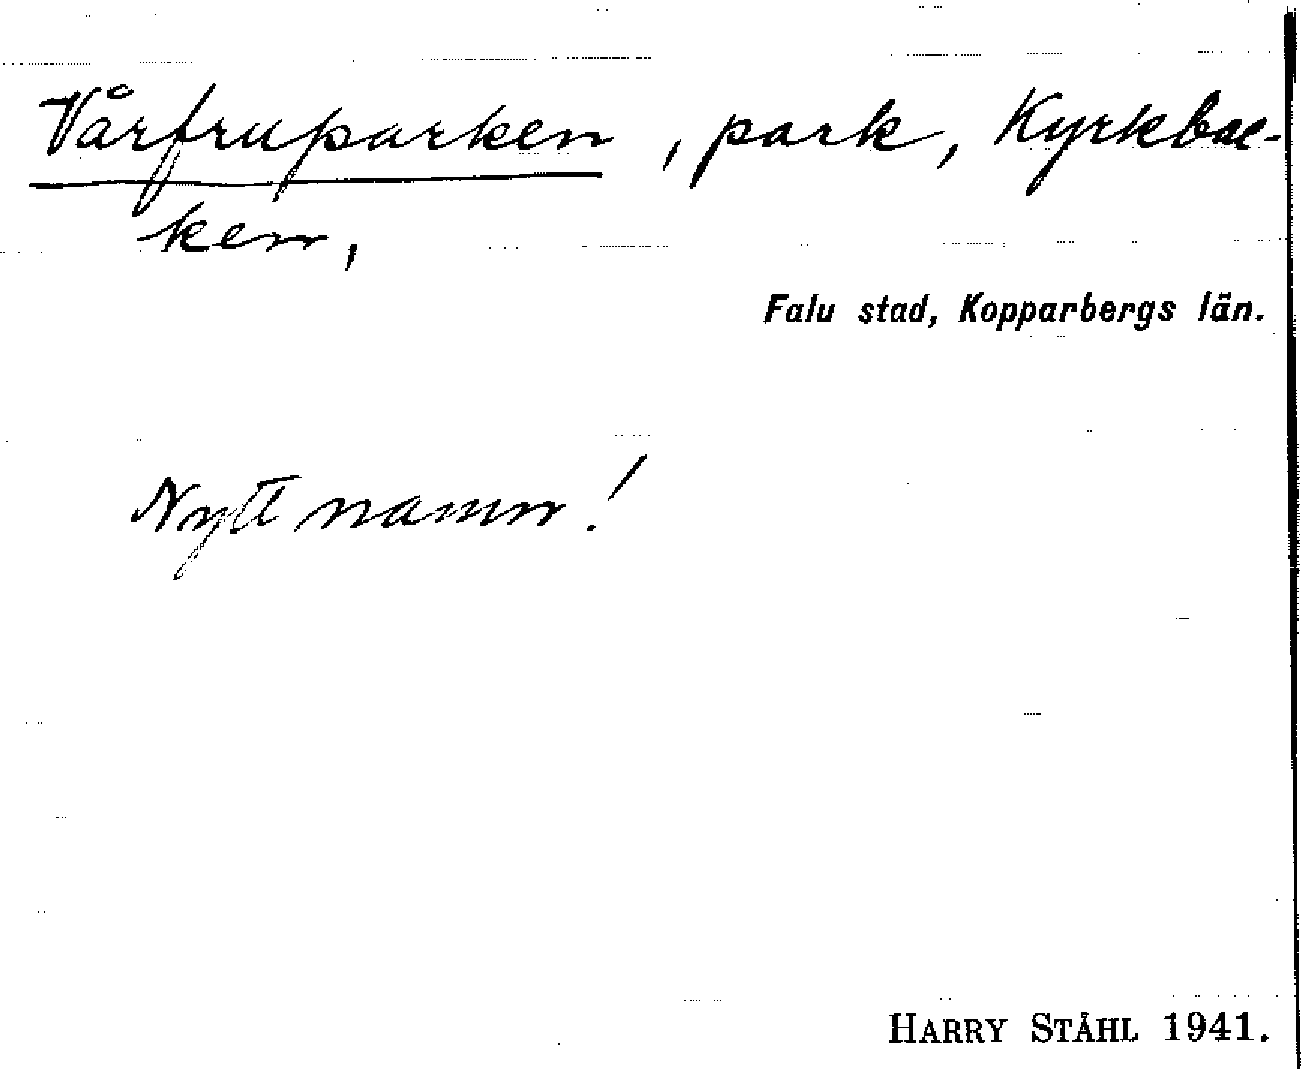 Vårfruparken, park, Kyrkbac-
ken,
Falu stad, Kopparbergs län.
Nytt namn!
HARRY STÅHL 1941.